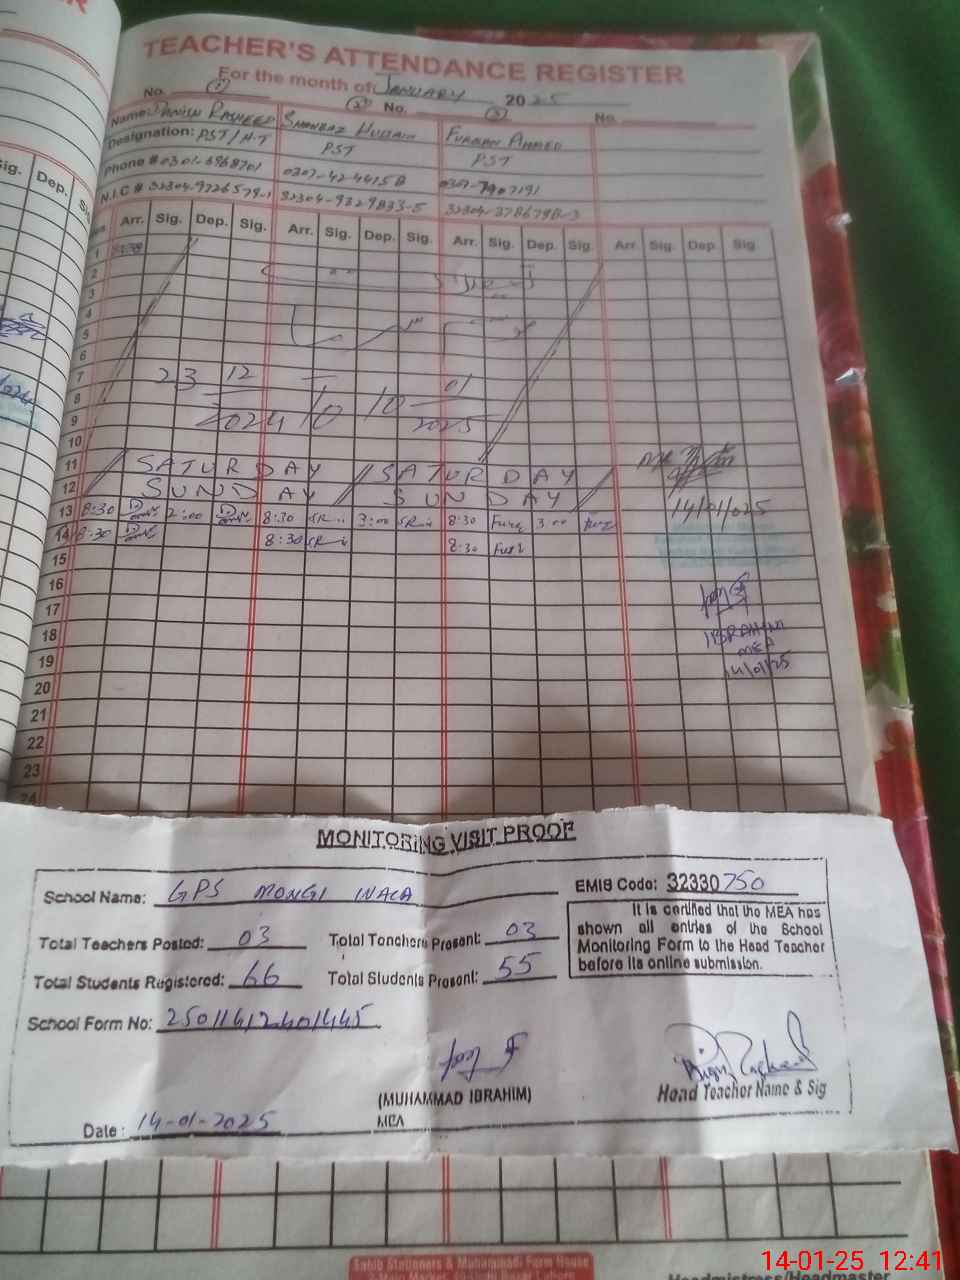 TEACHER'S ATTENDANCE REGISTER
For the month of January 2025
No. (1) (2) No. (3) No.
Name: Danish Rasheed Shahbaz Hussain Furqan Ahmed
Designation: PST/H.T PST PST
Phone # 0301-6968701 0307-4244158 0307-7907191
N.I.C # 32304-9726579-1 32304-9329833-5 32304-3786798-3
Arr. Sig. Dep. Sig. Arr. Sig. Dep. Sig. Arr. Sig. Dep. Sig. Arr. Sig. Dep. Sig.
1
2
3
4
5
6
7
8
9
10
23 12 2024 To 10 01 2025
11 SATURDAY SATURDAY
12 SUNDAY SUNDAY
13 8:30 2:00 8:30 3:00 8:30 Furq 3:00 Furq
14 8:30 8:30 8:30
14/01/025
15
16
17
18 IBRAHIM
MEA
19 14/01/25
20
21
22
23
24
MONITORING VISIT PROOF
School Name: GPS MONGI WALA EMIS Code: 32330750
Total Teachers Posted: 03 Total Teachers Present: 03
It is certified that the MEA has
shown all entries of the School
Monitoring Form to the Head Teacher
before its online submission.
Total Students Registered: 66 Total Students Present: 55
School Form No: 25011412401445
(MUHAMMAD IBRAHIM)
MEA
Head Teacher Name & Sig
Date: 14-01-2025
Sabib Stationers & Muhammadi Form House
Headmistress/Headmaster
14-01-25 12:41